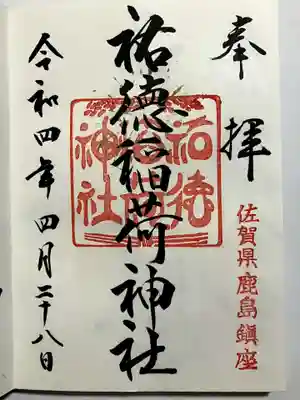 奉拝
佐賀県鹿島鎮座
祐徳稲荷神社
祐徳
神社
令和四年四月二十八日